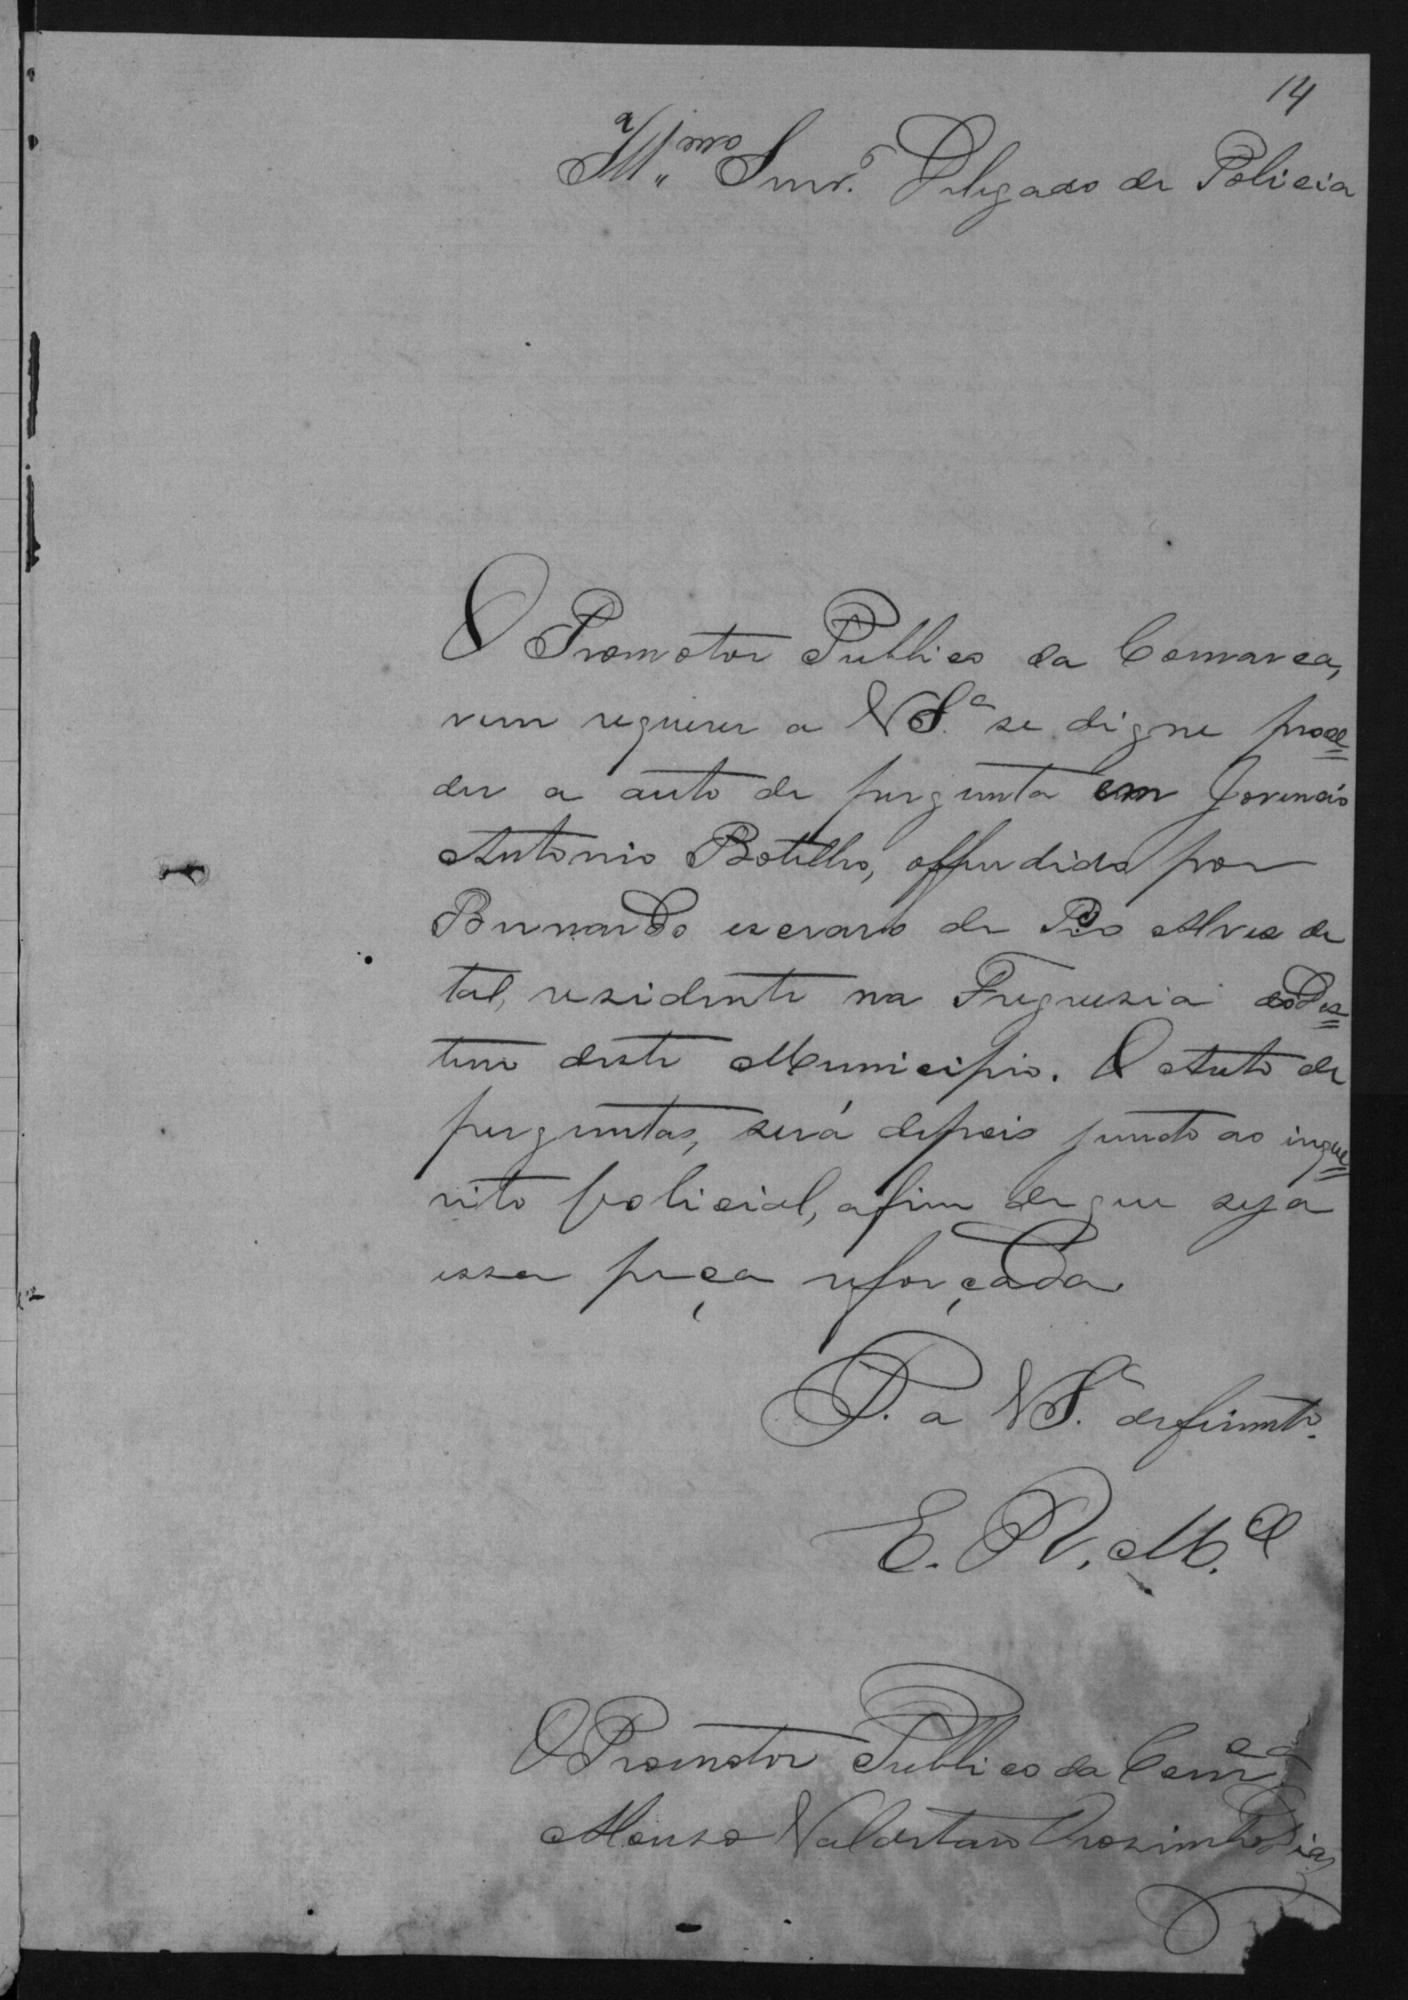 14
Ill.mo Snr. Delegado de Policia
O Promotor Publico da Comarca,
vem requerer a V S.a se digne proce=
der a auto de pergunta em Jovencio
Antonio Botelho, offendido por
Bernardo escravo de Pio Alves de
tal, residente na Freguesia do Des=
terro deste Municipio. O Auto de
perguntas, será depois junto ao inque=
rito policial, afim de que seja
essa peça reforçada.
P. a V S.a deferimento.
E. R. M.ce
O Promotor Publico da Com.ca
Dias